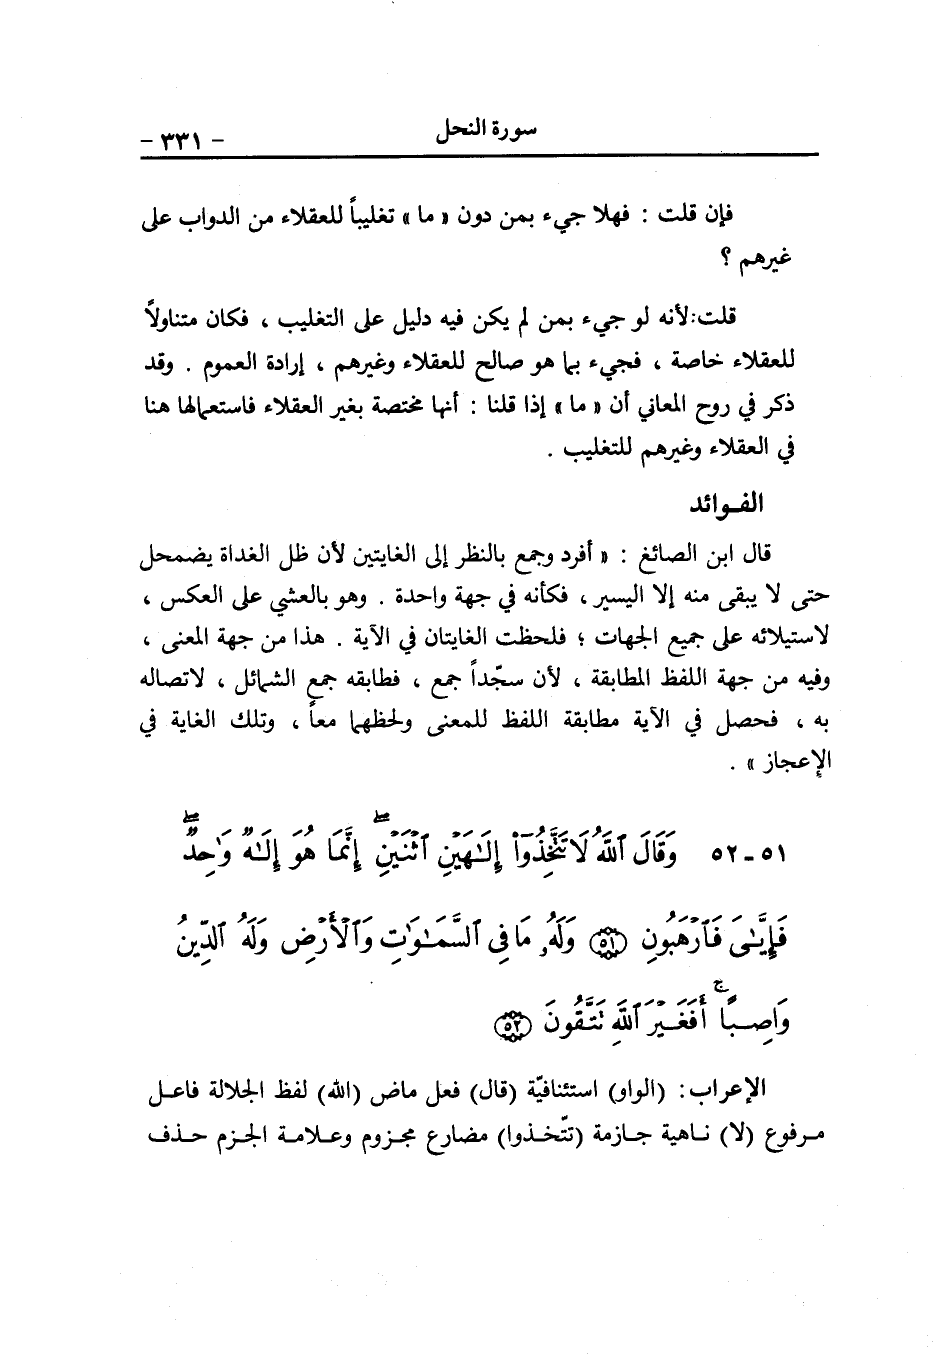 سورة النحل
- ٣٣١ -
فإن قلت : فهلا جيء بمن دون « ما » تغليباً للعقلاء من الدواب على
غيرهم ؟
قلت:لأنه لو جيء بمن لم يكن فيه دليل على التغليب ، فكان متناولاً
للعقلاء خاصة ، فجيء بما هو صالح للعقلاء وغيرهم ، إرادة العموم . وقد
ذكر في روح المعاني أن « ما » إذا قلنا : أنها مختصة بغير العقلاء فاستعمالها هنا
في العقلاء وغيرهم للتغليب .
الفـوائد
قال ابن الصائغ : « أفرد وجمع بالنظر إلى الغايتين لأن ظل الغداة يضمحل
حتى لا يبقى منه إلا اليسير ، فكأنه في جهة واحدة . وهو بالعشي على العكس ،
لاستيلائه على جميع الجهات ؛ فلحظت الغايتان في الآية . هذا من جهة المعنى ،
وفيه من جهة اللفظ المطابقة ، لأن سجّداً جمع ، فطابقه جمع الشمائل ، لاتصاله
به ، فحصل في الآية مطابقة اللفظ للمعنى ولحظهما معاً ، وتلك الغاية في
الإعجاز » .
٥١ - ٥٢ وَقَالَ ٱللَّهُ لَا تَتَّخِذُوٓا۟ إِلَـٰهَيْنِ ٱثْنَيْنِ ۖ إِنَّمَا هُوَ إِلَـٰهٌ وَٰحِدٌ ۖ
فَإِيَّـٰىَ فَٱرْهَبُونِ ﴿٥١﴾ وَلَهُۥ مَا فِى ٱلسَّمَـٰوَٰتِ وَٱلْأَرْضِ وَلَهُ ٱلدِّينُ
وَاصِبًا ۚ أَفَغَيْرَ ٱللَّهِ تَتَّقُونَ ﴿٥٢﴾
الإعراب : (الواو) استئنافيّة (قال) فعل ماض (الله) لفظ الجلالة فاعـل
مـرفوع (لا) نـاهية جـازمة (تتّخـذوا) مضارع مجـزوم وعـلامـة الجـزم حـذف